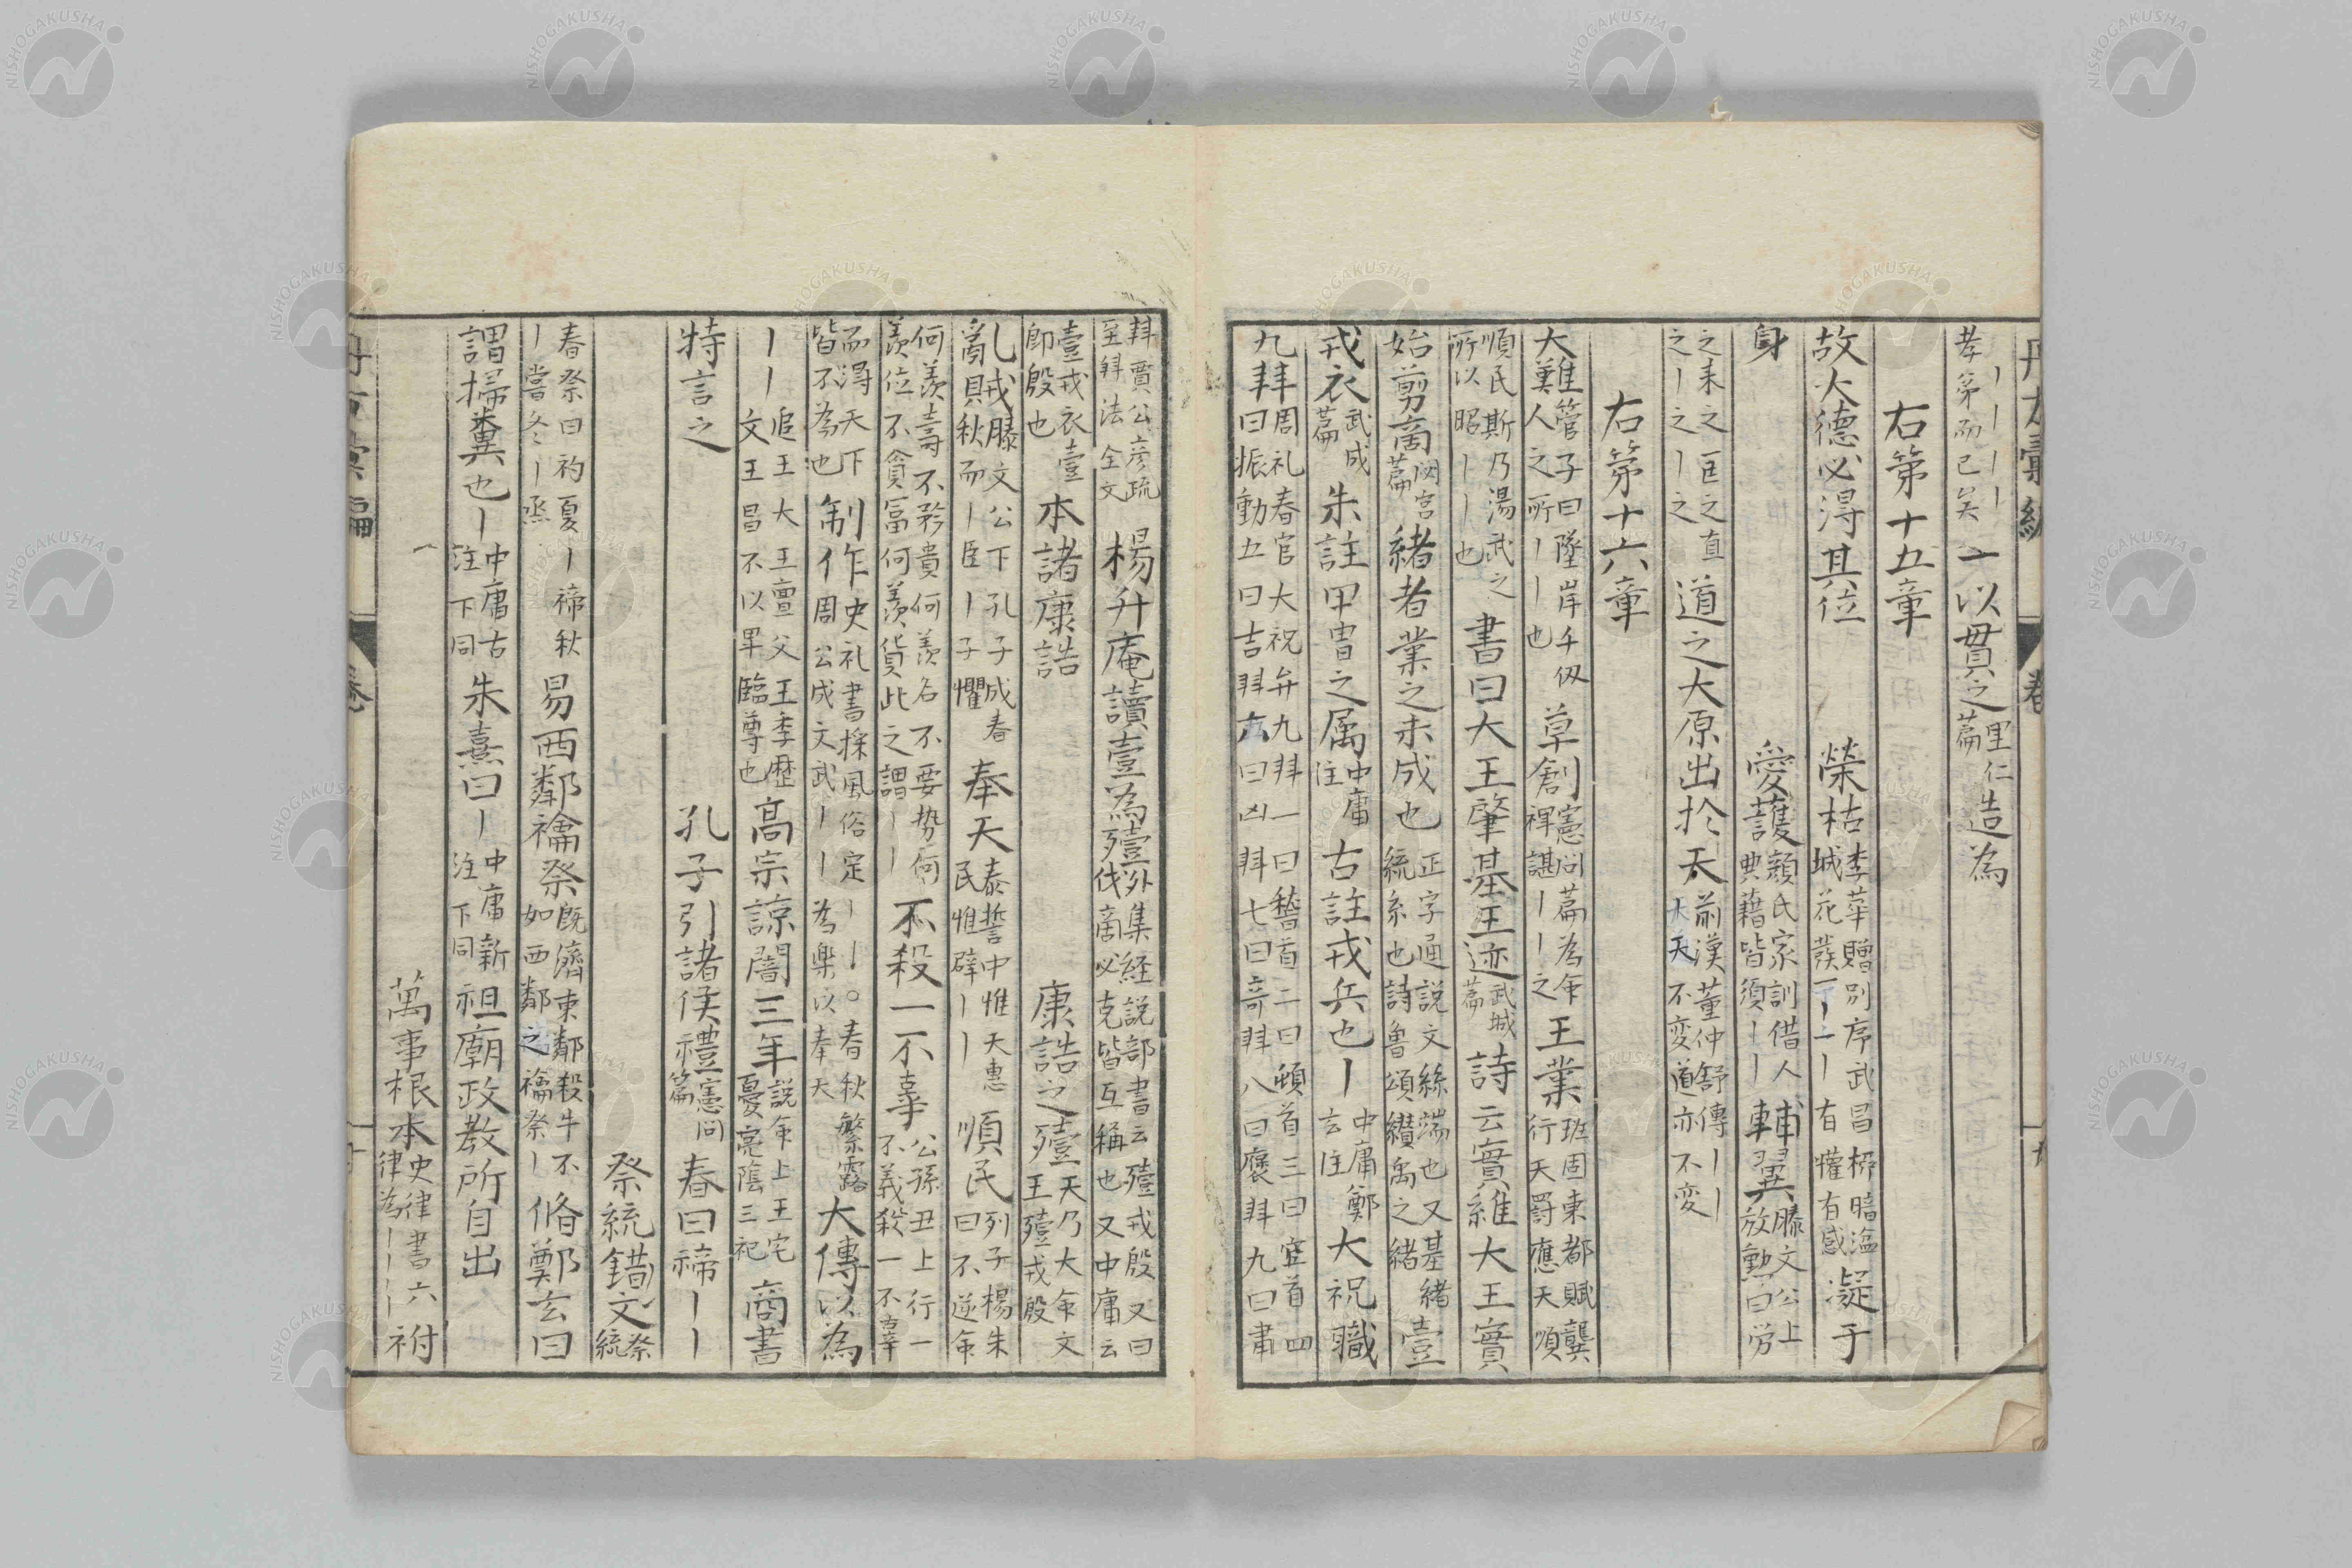 丨丨丨丨孝第而已矣 一以貫之里仁篇 造為
右第十五章
故大德必淂其位 榮枯李華贈別序武昌栁暗溢城花蕟一丨二丨有懽有感 凝于
身 愛護顔氏家訓借人典藉皆須丨丨 輔翼滕文公上放勲曰労
之来之匡之直之丨之丨之 道之大原出於天前漢董仲舒傳丨丨大天不変道亦不変
右第十六章
大難管子曰墜岸千仭人之所丨丨也 草創憲问篇為命裨諶丨丨之 王業班固東都賦龔行天罸應天順
順民斯乃湯武之所以昭丨丨也 書曰大王肇基王迹武城篇 詩云實維大王實
始剪商閟宮篇 緒者業之未成也正字通説文絲端也又基緒統系也詩魯頌纉禹之緒 壹
戎衣武成篇 朱註甲冑之属中庸注 古註戎兵也丨中庸鄭玄注 大祝職
九拜周礼春官大祝弁九拜一曰𥡴首二曰頓首三曰空首四曰振動五曰吉拜六曰凶拜七曰竒拜八曰褒拜九曰肅
拜賈公彦疏至拜法全文 楊升庵讀壹為殪外集経説部書云殪戎殷又曰伐商必克皆互稱也又中庸云
壹戎衣壹即殷也 本諸康誥 康誥之殪天乃大命文王殪戎殷
乱戎滕文公下孔子成春亂賊秋而丨臣丨子懼 奉天泰誓中惟天惠民惟辟丨丨 順民列子楊朱曰不逆命
何羨壽不矜貴何羨名不要势何羨位不貪冨何羨貨此之謂丨丨 不殺一不辜公孫丑上行一不義殺一不古辜
而淂天下皆不為也 制作史礼書採風俗定丨丨○春秋繁露周公成文武丨丨為樂以奉天 大傳以為
丨丨追王大王亶父王季歴文王昌不以卑臨尊也 高宗諒闇三年説命上王宅憂亮陰三祀 商書
特言之 孔子引諸侯禮憲问篇 春曰禘丨丨
祭統錯文祭統
春祭曰礿夏丨禘秋丨嘗冬丨烝 易西鄰禴祭既濟東鄰殺牛不如西鄰之禴祭丨 脩鄭玄曰
謂掃糞也丨中庸古注下同 朱熹曰丨中庸新注下同 祖廟政教所自出
萬事根本史律書六律為丨丨丨丨 祔